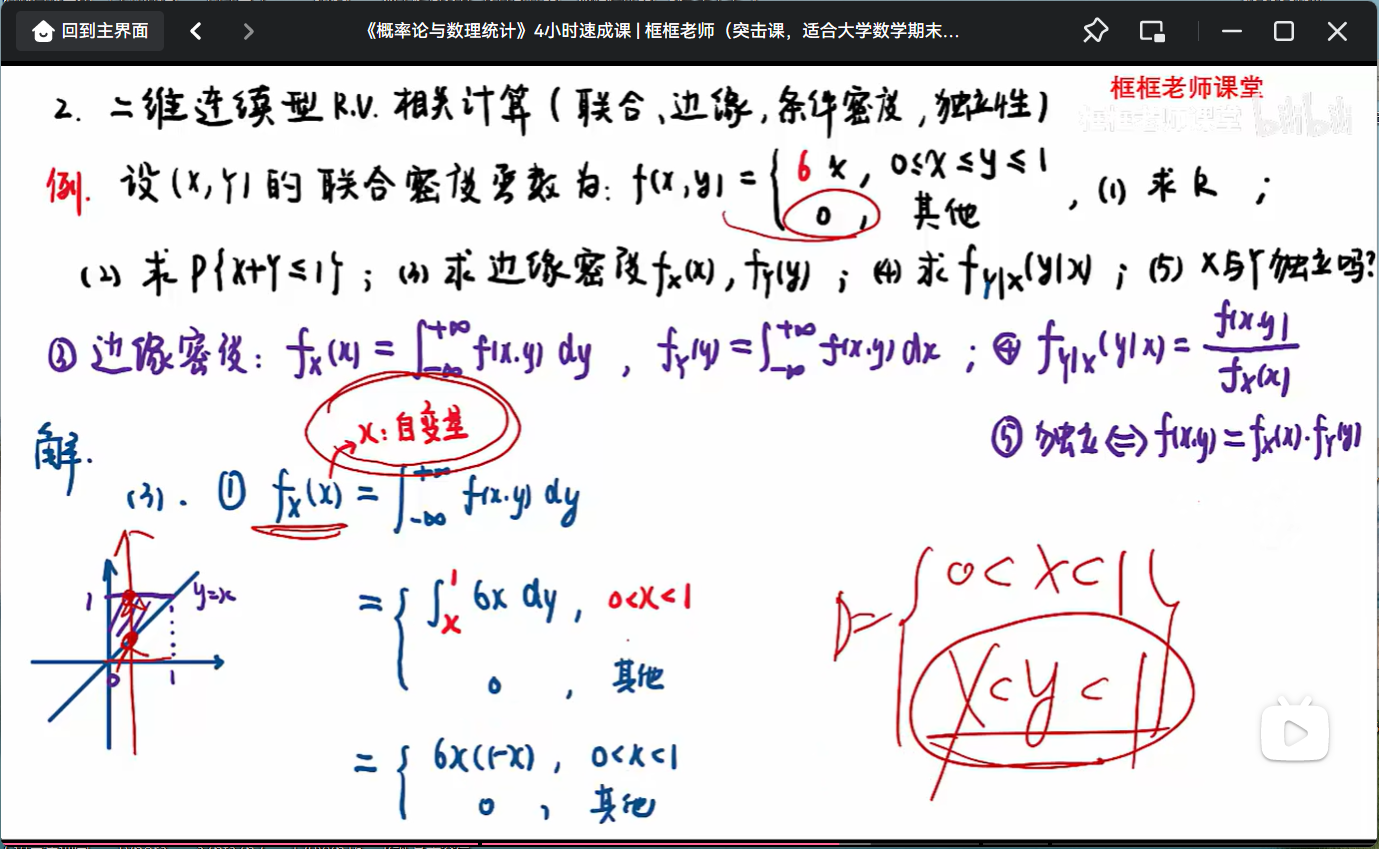 回到主界面 《概率论与数理统计》4小时速成课 | 框框老师（突击课，适合大学数学期末...
框框老师课堂
框框老师课堂 bilibili
2. 二维连续型 R.V. 相关计算 (联合、边缘, 条件密度, 独立性)
例. 设(X,Y)的联合密度函数为: f(x,y) = { 6x, 0≤x≤y≤1
0, 其他 , (1) 求k ;
(2) 求P{X+Y≤1} ; (3) 求边缘密度 fX(x), fY(y) ; (4) 求 fY|X(y|x) ; (5) X与Y独立吗?
③ 边缘密度: fX(x) = ∫_{-∞}^{+∞} f(x.y) dy , fY(y) = ∫_{-∞}^{+∞} f(x.y) dx ; ④ fY|X(y|x) = f(x.y) / fX(x)
⑤ 独立 ⇔ f(x.y) = fX(x)·fY(y)
x: 自变量
解.
(3). ① fX(x) = ∫_{-∞}^{+∞} f(x.y) dy
= { ∫_x^1 6x dy , 0<x<1
0 , 其他
= { 6x(1-x) , 0<x<1
0 , 其他
1 y=x
0 1
D= { 0<x<1
x<y<1 }